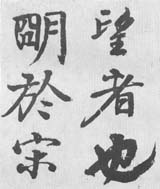 望者也
明於宋